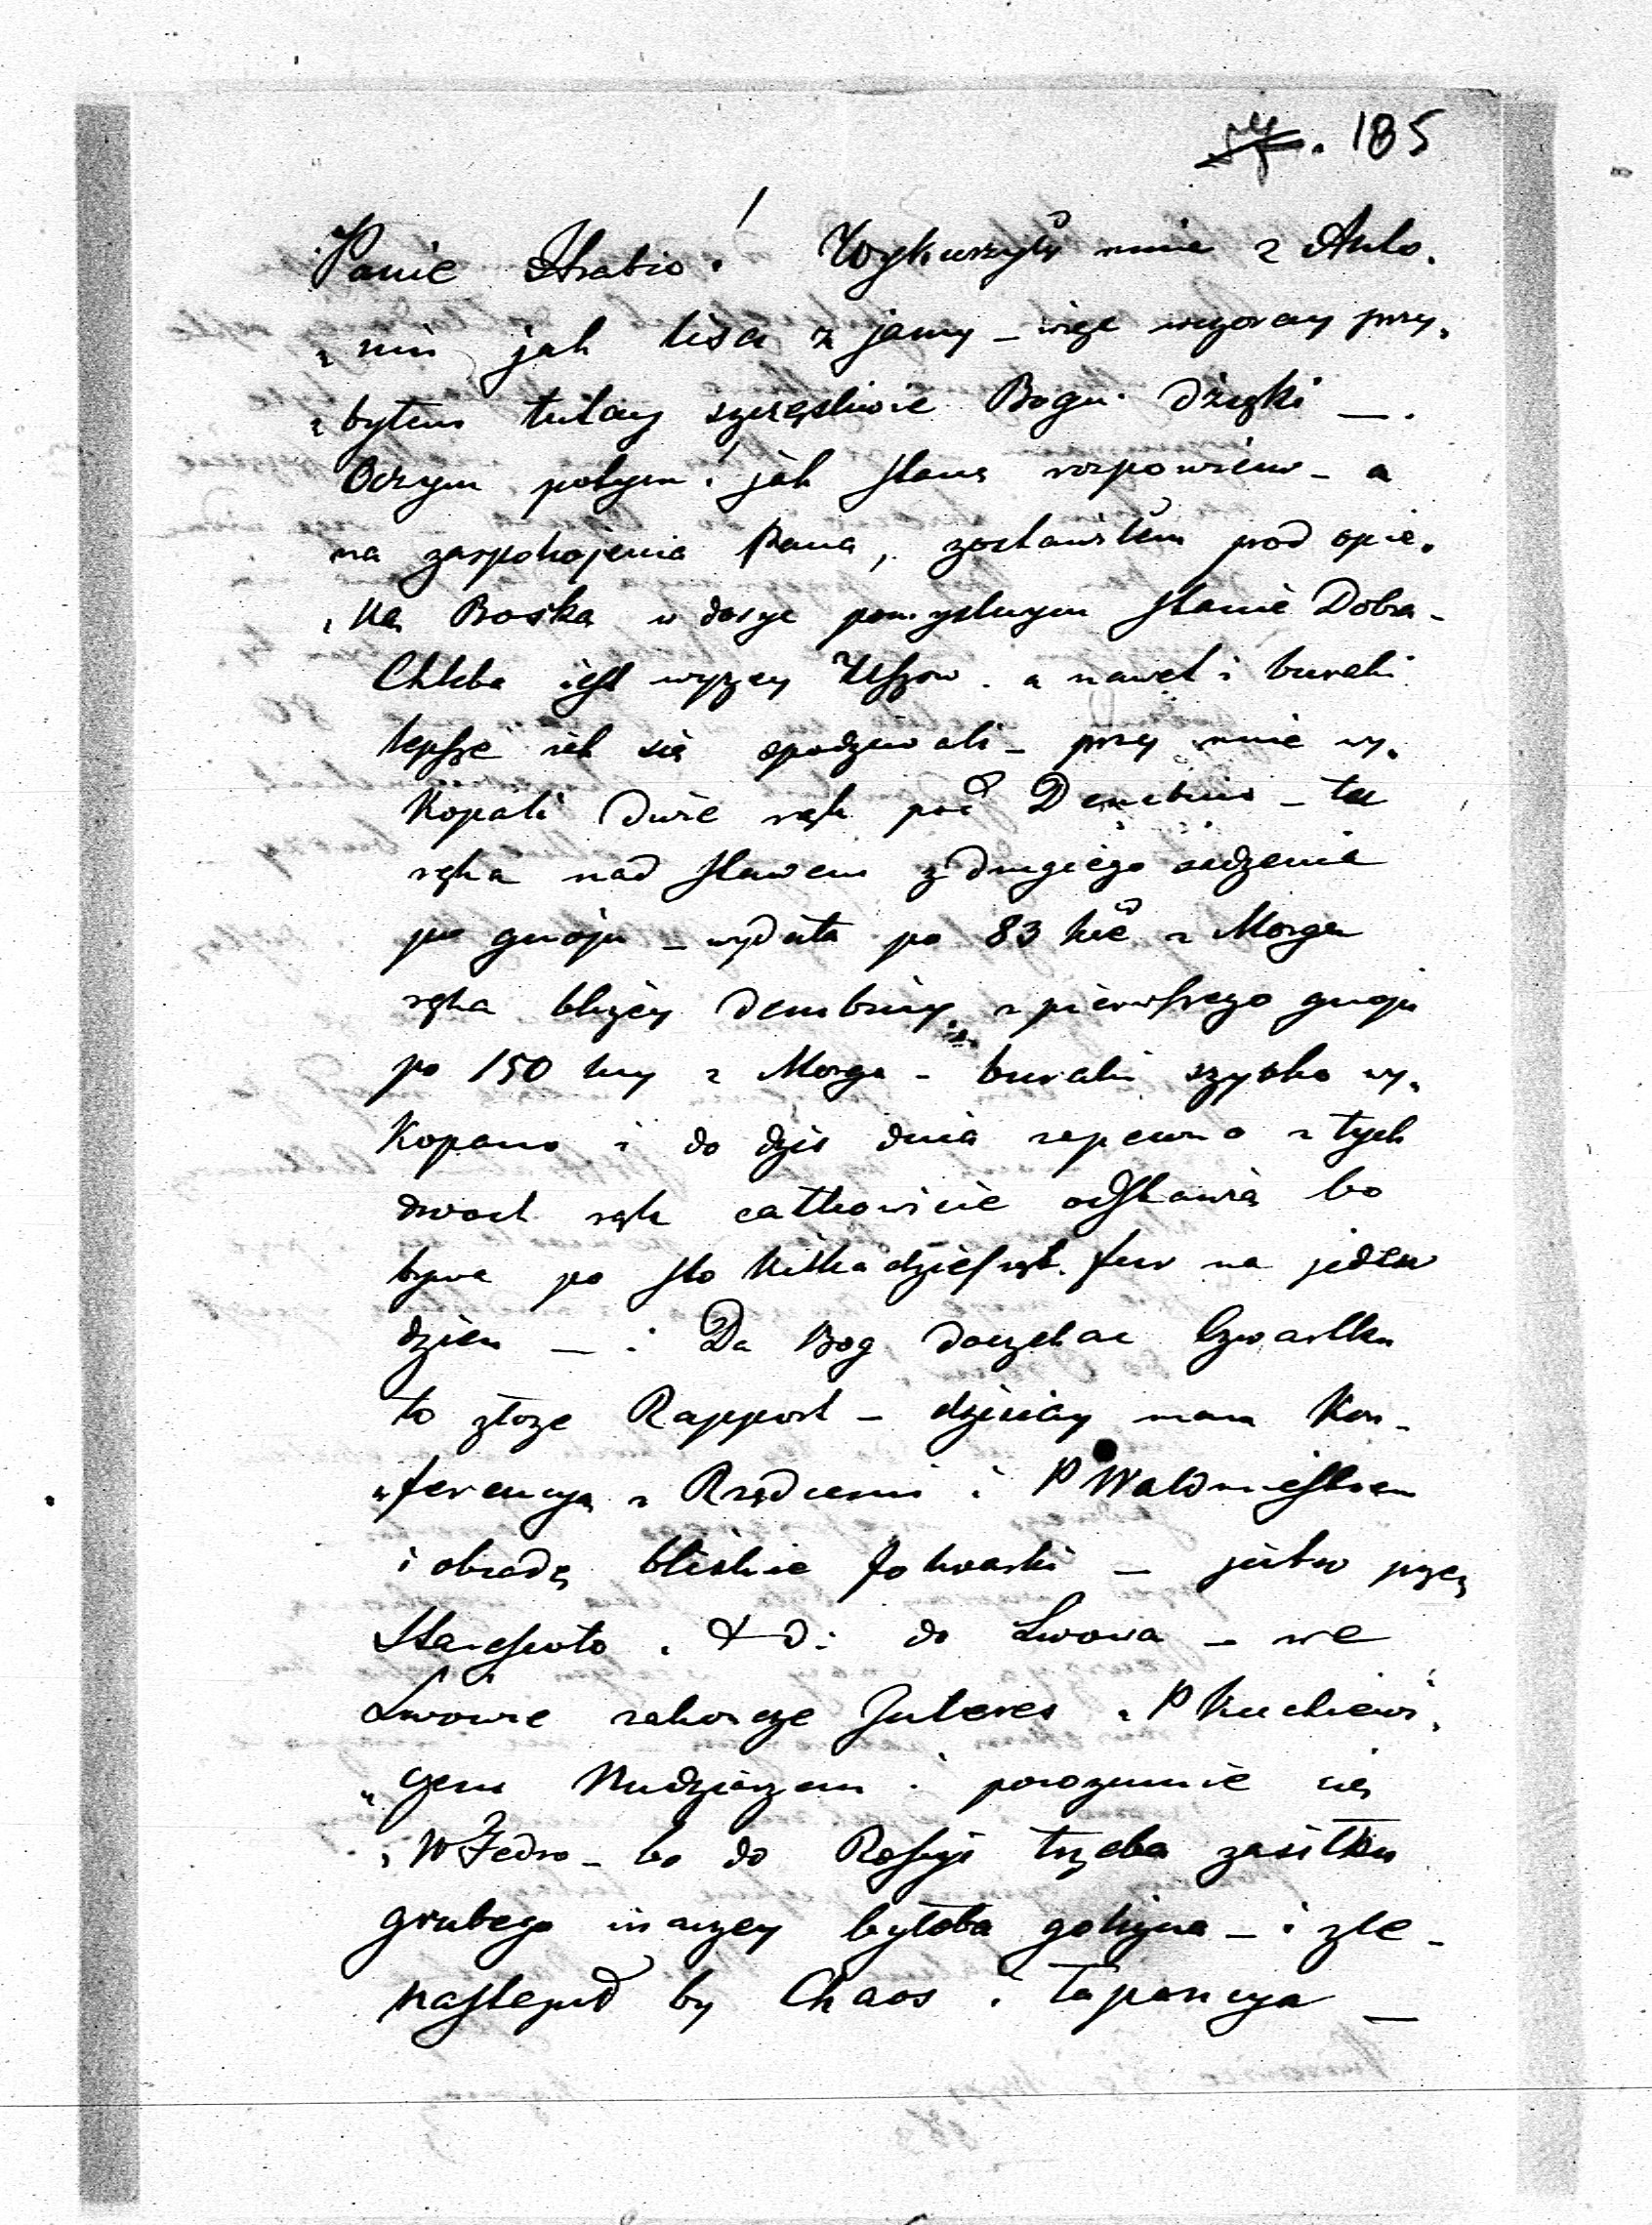 185
Panie Hrabio! Wykurzyłeś mnie z Anto„
„nin jak lisa z jamy – więc wczoray przy„
„byłem tutay szczęsliwie Bogu dzięki –.
Oczym potym jak stanę rozpowiem – a
na zaspokojenia Pana, zostawiłem pod opie„
„ką Boską w dosyc pomyslnym stanie Dobra –
Chleba jest wyzey Uszow. a nawet i buraki
lepsze jak się spodziwali – przy mnie wy„
Kopali dwie ręk pod Dembino – ta
ręka nad stawem z drugiego sadzenia
po gnoju – wydała po 83 z Morga
ręka bliżey dembiny z pierwszego gnoju
po 150 z Morga – buraki szypko wy„
Kopano i do dzis dnia zapewno z tych
dwoch ręk całkowicie odstawią bo
bywa po sto kilkadziesąt fur na jeden
dzien – : Da Bog doczekac Czwartku
to złoze Rapport – dzisiay mam Kon„
„ferencyą z Rządcami i P Waldmeistrem
i obiadę bliskie folwarki – jutro przez
do Lwowa – we
Lwowie zakoncze Interes z P Kuckiewi„
„czem Kudziązem i porozumie się
z W Fedro – bo do Rossyi trzeba zasiłku
grubego inaczey byłoba golizna – i zle –
nastempił by Chaos i łapancya –